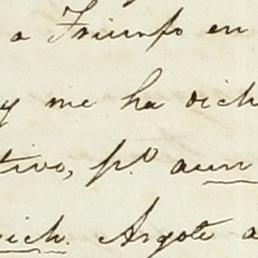 a Triunfo en
y me ha dich
tivo, pº. aun
ich. Argote a